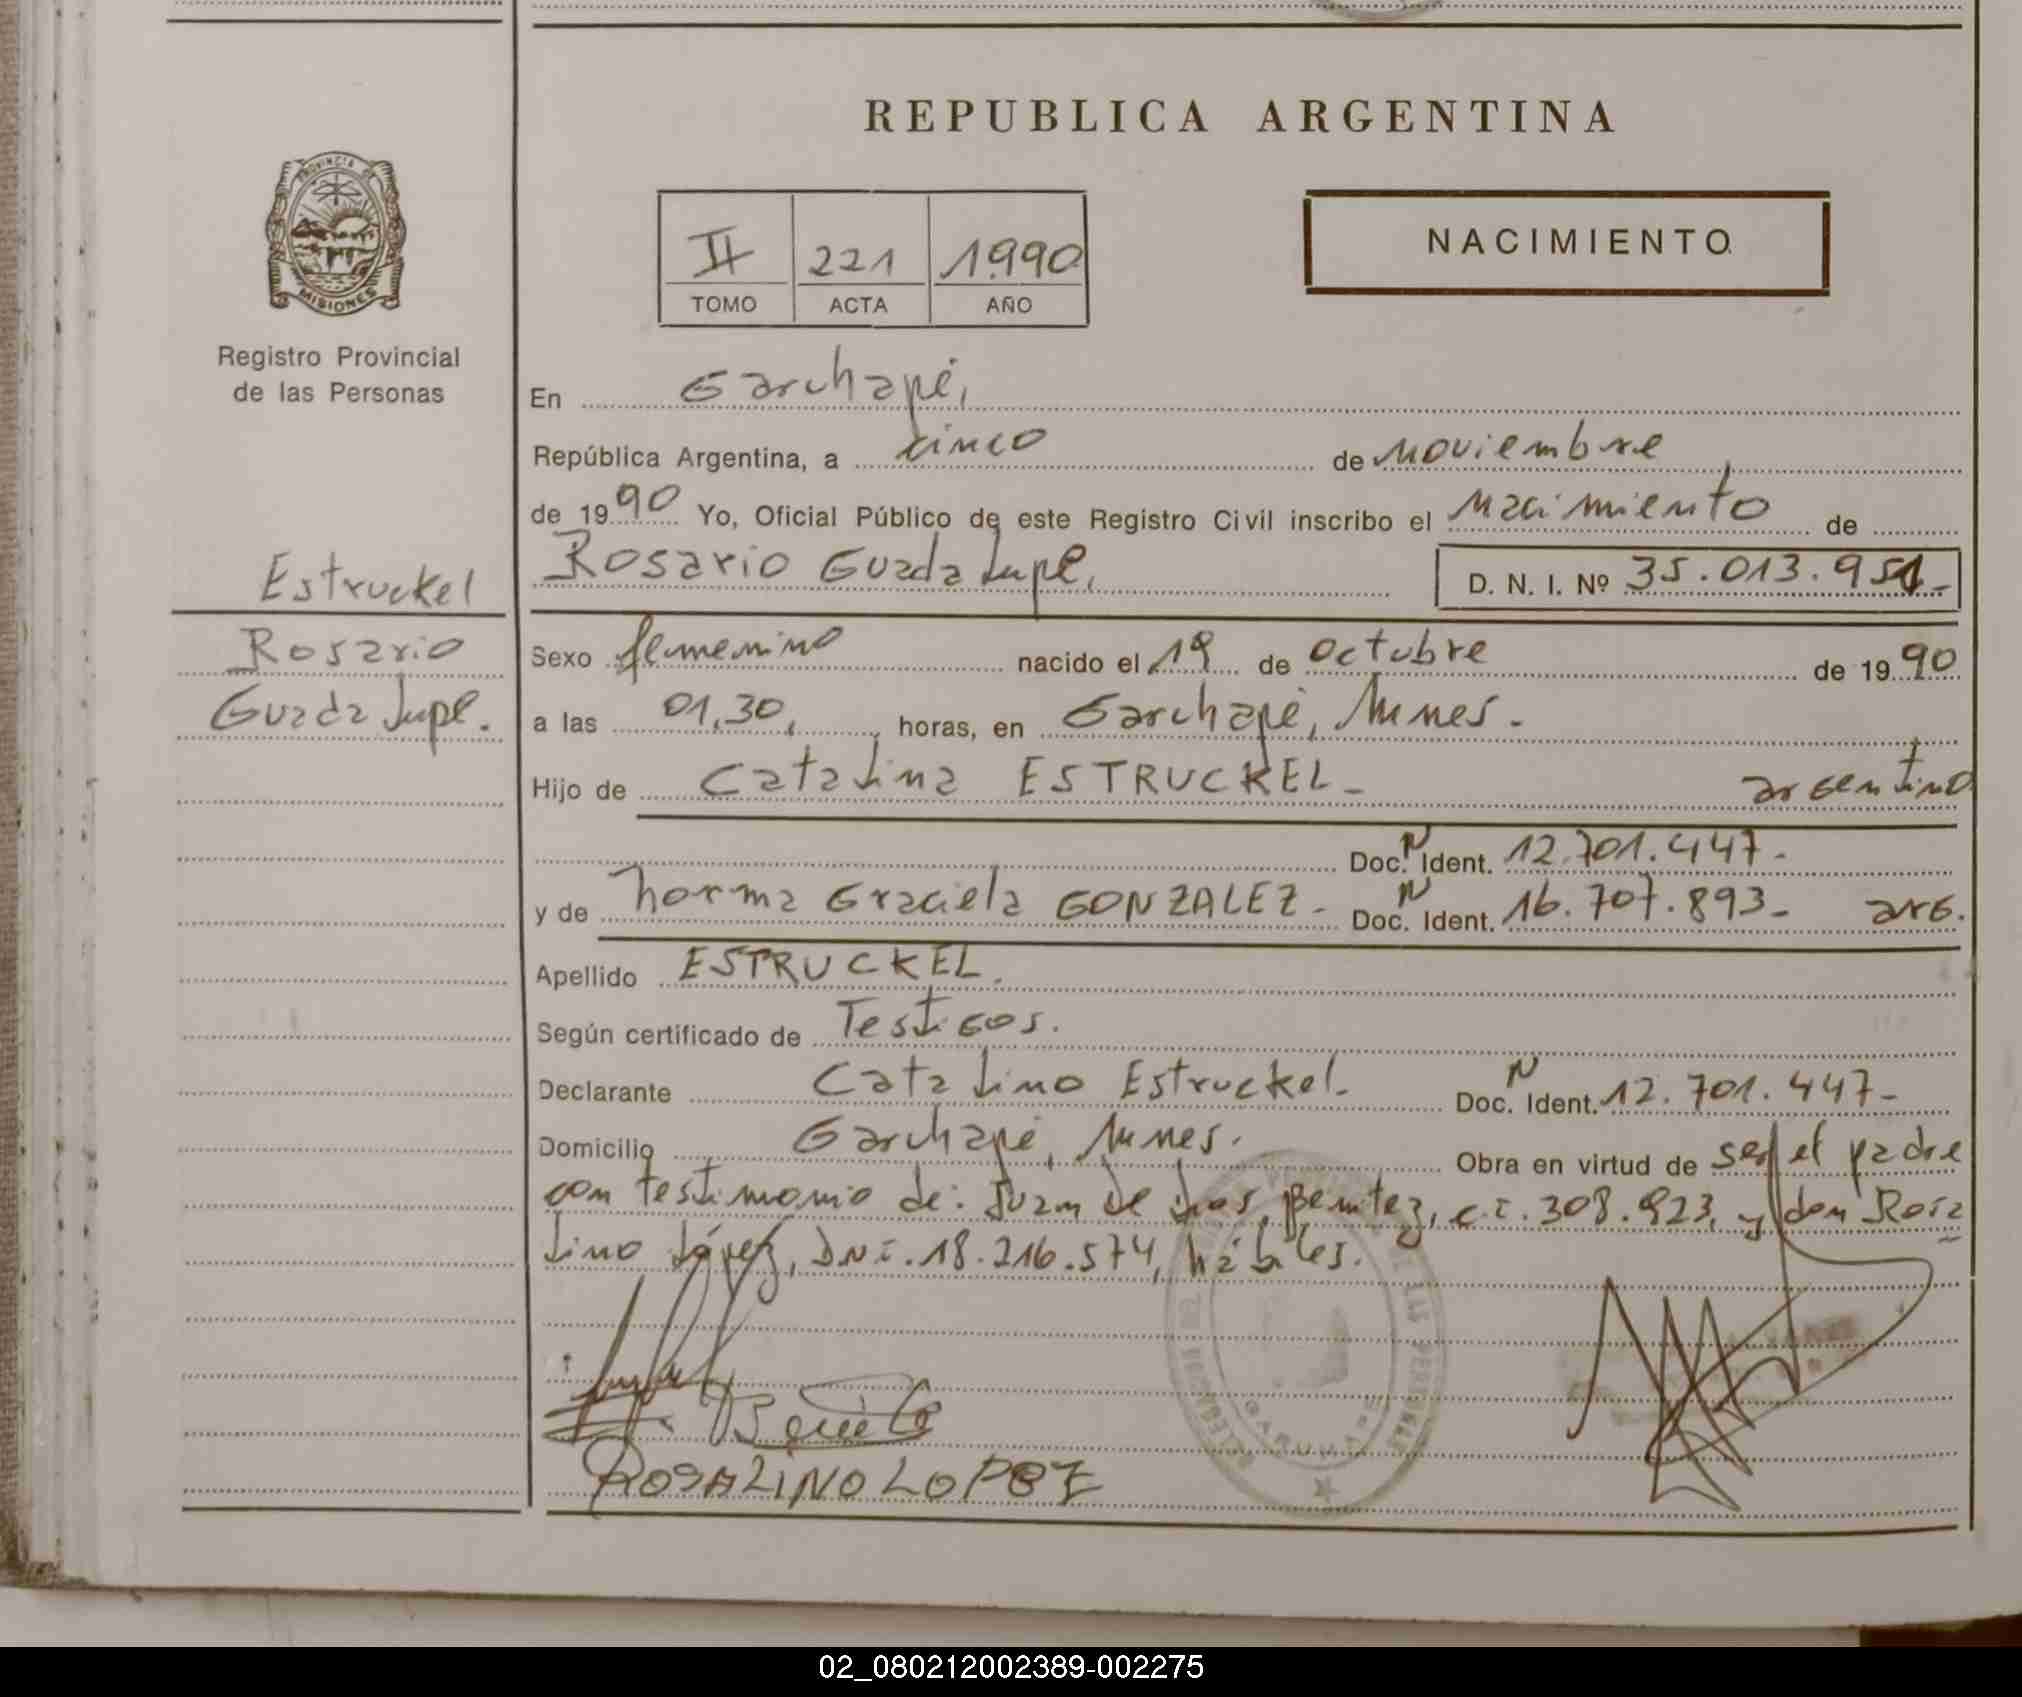 REPUBLICA ARGENTINA
PROVINCIA DE
MISIONES
Registro Provincial
de las Personas
II 221 1990
TOMO ACTA AÑO
NACIMIENTO
En Garuhapé,
República Argentina, a cinco de noviembre
de 1990 Yo, Oficial Público de este Registro Civil inscribo el nacimiento de
Rosario Guadalupe, D. N. I. Nº 35.013.951-
Estruckel
Rosario
Guadalupe.
Sexo femenino nacido el 19 de octubre de 1990
a las 01,30, horas, en Garuhapé, Mnes.
Hijo de Catalina ESTRUCKEL- argentino
Doc. N Ident. 12.701.447-
y de Norma Graciela GONZALEZ- Doc. N Ident. 16.707.893- arg.
Apellido ESTRUCKEL.
Según certificado de Testigos.
Declarante Catalino Estruckel- Doc. N Ident. 12.701.447-
Domicilio Garuhapé, Mnes. Obra en virtud de ser el padre
con testimonio de: Juan de Dios Benitez, c.i. 308.923, y don Rosa
lino López, DNI. 18.216.574, hábiles.
Benitez
ROSALINO LOPEZ
GARUHAPE
02_080212002389-002275